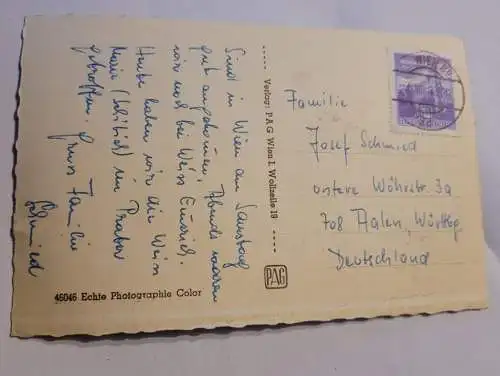 Sind in Wien am Samstag
gut angekommen. Abends waren
wir noch bei Weiss
Heute haben wir die Weiss
Maria im Prater
getroffen. Gruss Familie
Schmied
Verlag: PAG Wien I. Wollzeile 19
PAG
46046 Echte Photographie Color
Familie
Josef Schmied
untere Wöhrstr. 3a
708 Aalen, Württbg.
Deutschland